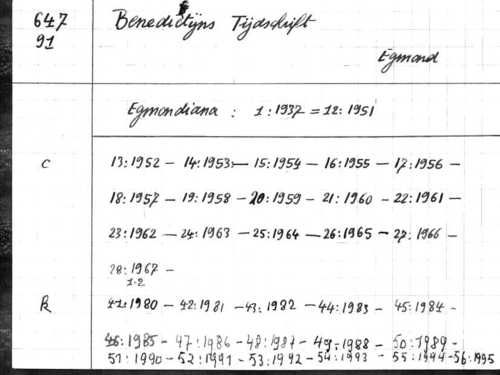 647 Benedictijns Tijdschrift
91
Egmond
Egmondiana : 1:1937 = 12:1951
C 13:1952 – 14:1953 – 15:1954 – 16:1955 – 17:1956 –
18:1957 – 19:1958 – 20:1959 – 21:1960 – 22:1961 –
23:1962 – 24:1963 – 25:1964 – 26:1965 – 27:1966 –
28:1967 –
1-2
K 41:1980 – 42:1981 – 43:1982 – 44:1983 – 45:1984 –
46:1985 – 47:1986 – 48:1987 – 49:1988 – 50:1989 –
51:1990 – 52:1991 – 53:1992 – 54:1993 – 55:1994 – 56:1995